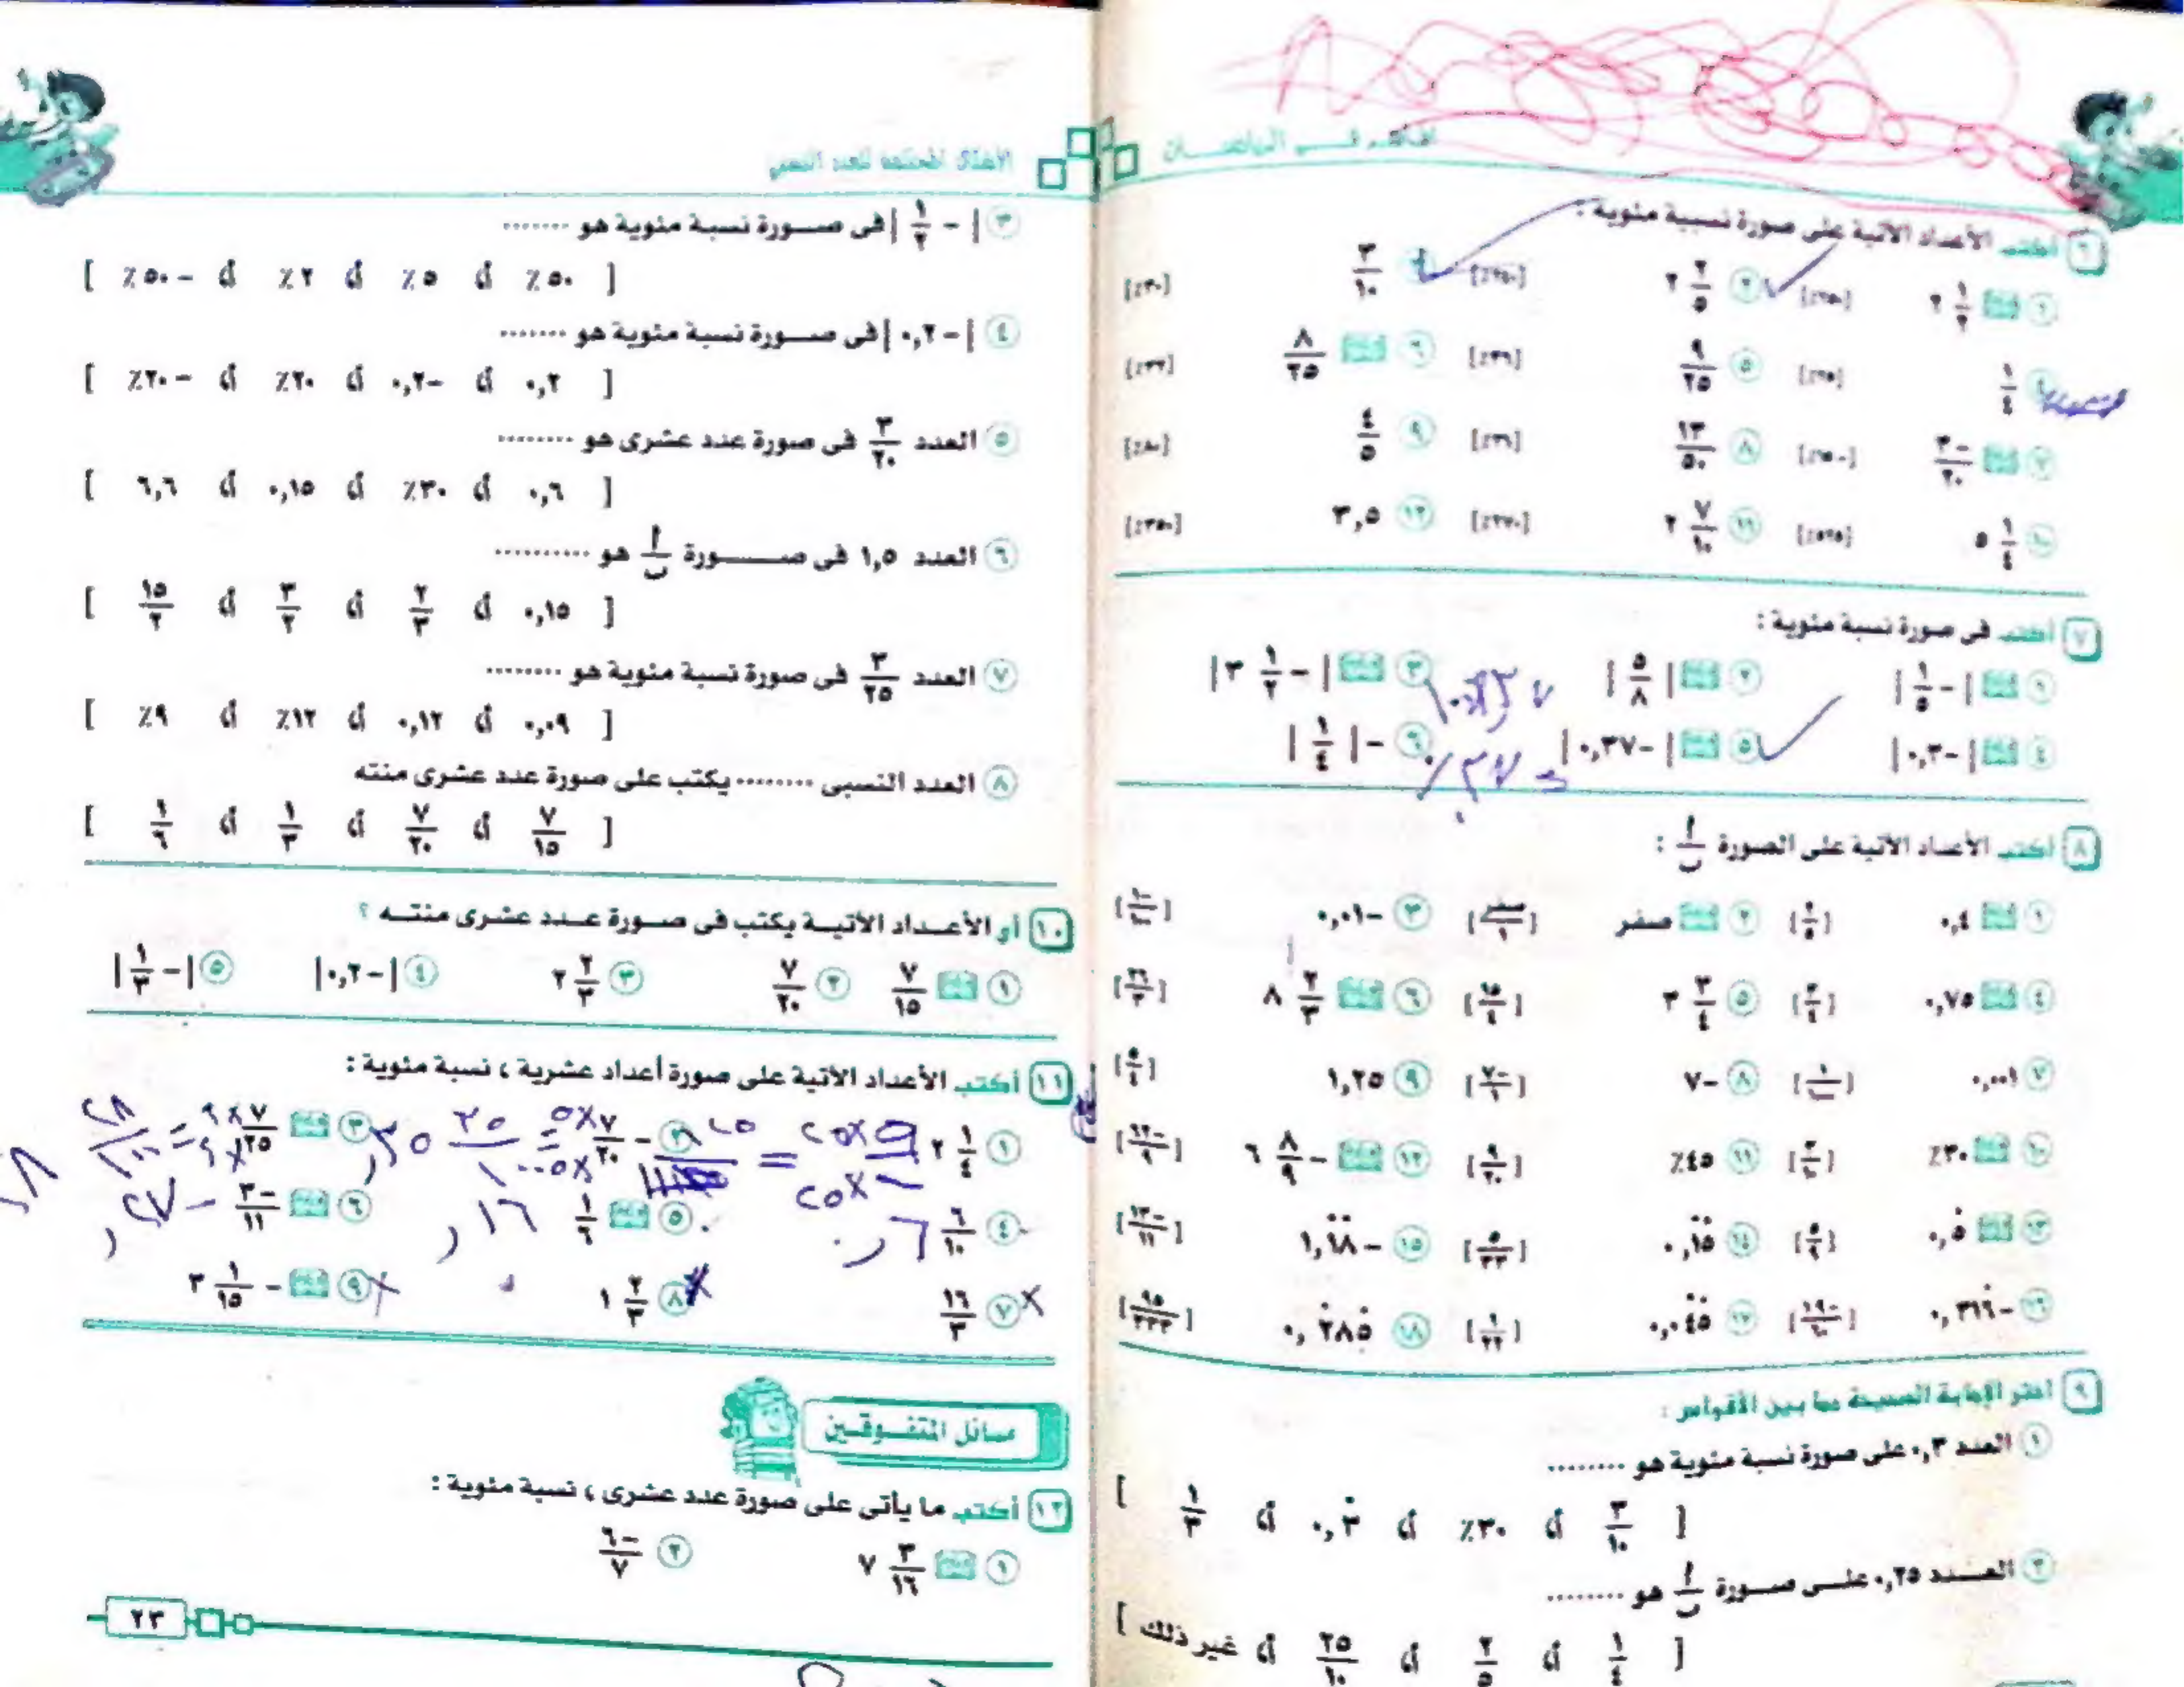 الأشكال المختلفة للعدد النسبى
٦ أكتب الأعداد الآتية على صورة نسبية مئوية :
١ ٢ ١/٢ [٢٥٠٪] ٢ ٢ ٢/٥ [٢٤٠٪] ٣ ٣/١٠ [٣٠٪]
٤ ١/٤ [٢٥٪] ٥ ٩/٢٥ [٣٦٪] ٦ ٨/٢٥ [٣٢٪]
٧ -٣/٢٠ ٨ ١٣/٥٠ [٢٦٪] ٩ ٤/٥ [٨٠٪]
١٠ ٥ ١/٤ [٥٢٥٪] ١١ ٢ ٧/١٠ [٢٧٠٪] ١٢ ٣,٥ [٣٥٠٪]
٧ أكتب فى صورة نسبة مئوية :
١ |-١/٥| ٢ |٥/٨| ٣ |-٣ ١/٢|
٤ |-٠,٣| ٥ |-٠,٣٧| ٦ -|١/٤|
٨ أكتب الأعداد الآتية على الصورة أ/ب :
١ ٠,٤ ٢ صفر [صفر/١] ٣ -٠,٠١
٤ ٠,٧٥ [٣/٤] ٥ ٣ ٣/٤ [١٥/٤] ٦ ٨ ٢/٣ [٢٦/٣]
٧ ٠,٠٠١ ٨ -٧ [-٧/١] ٩ ١,٢٥ [٥/٤]
١٠ ٣٠٪ [٣/١٠] ١١ ٤٥٪ [٩/٢٠] ١٢ -٦ ٨/٩
١٣ ٠,٥̇ [٥/٩] ١٤ ٠,١̇٥̇ [٥/٣٣] ١٥ -١,١̇٨̇ [-١٣/١١]
١٦ -٠,٣١٦̇ ١٧ ٠,٠٤̇٥̇ [١/٢٢] ١٨ ٠,٢̇٨٥̇ [٩٥/٣٣٣]
٩ أختر الإجابة الصحيحة مما بين الأقواس :
١ العدد ٠,٣ على صورة نسبة مئوية هو ........
[ ٣/١٠ أ، ٣٠٪ أ، ٠,٣̇ أ، ١/٣ ]
٢ العـدد ٠,٢٥ على صـورة أ/ب هو ........
[ ١/٤ أ، ٢/٥ أ، ٢٥/١٠ أ، غير ذلك ]
٣ |-١/٢| فى صـورة نسبة مئوية هو .......
[ ٥٠٪ أ، ٥٪ أ، ٢٪ أ، -٥٠٪ ]
٤ |-٠,٢| فى صـورة نسبة مئوية هو .......
[ ٠,٢ أ، -٠,٢ أ، ٢٠٪ أ، -٢٠٪ ]
٥ العدد ٣/٢٠ فى صورة عدد عشرى هو ........
[ ٠,٦ أ، ٣٠٪ أ، ٠,١٥ أ، ٦,٦ ]
٦ العدد ١,٥ فى صـــورة أ/ب هو ..........
[ ٠,١٥ أ، ٢/٣ أ، ٣/٢ أ، ١٥/٢ ]
٧ العدد ٣/٢٥ فى صورة نسبة مئوية هو ........
[ ٠,٠٩ أ، ٠,١٢ أ، ١٢٪ أ، ٩٪ ]
٨ العدد النسبى ........ يكتب على صورة عدد عشرى منته
[ ٧/١٥ أ، ٧/٢٠ أ، ١/٣ أ، ١/٦ ]
١٠ أى الأعـداد الآتيـة يكتب فى صـورة عـدد عشرى منتـه ؟
١ ٧/١٥ ٢ ٧/٢٠ ٣ ٢ ٢/٣ ٤ |-٠,٢| ٥ |-١/٣|
١١ أكتب الأعداد الآتية على صورة أعداد عشرية ، نسبة مئوية :
١ ٢ ١/٤ ٢ -٧/٢٠ ٣ ٧/٢٥
٤ ٦/١٠ ٥ ١/٦ ٦ -٣/١١
٧ ١٦/٣ ٨ ١ ٢/٣ ٩ -٣ ١/١٥
مسائل المتفـوقـين
١٢ أكتب ما يأتى على صورة عدد عشرى ، نسبة مئوية :
١ ٧ ٣/١٦ ٢ -٦/٧
٢٣